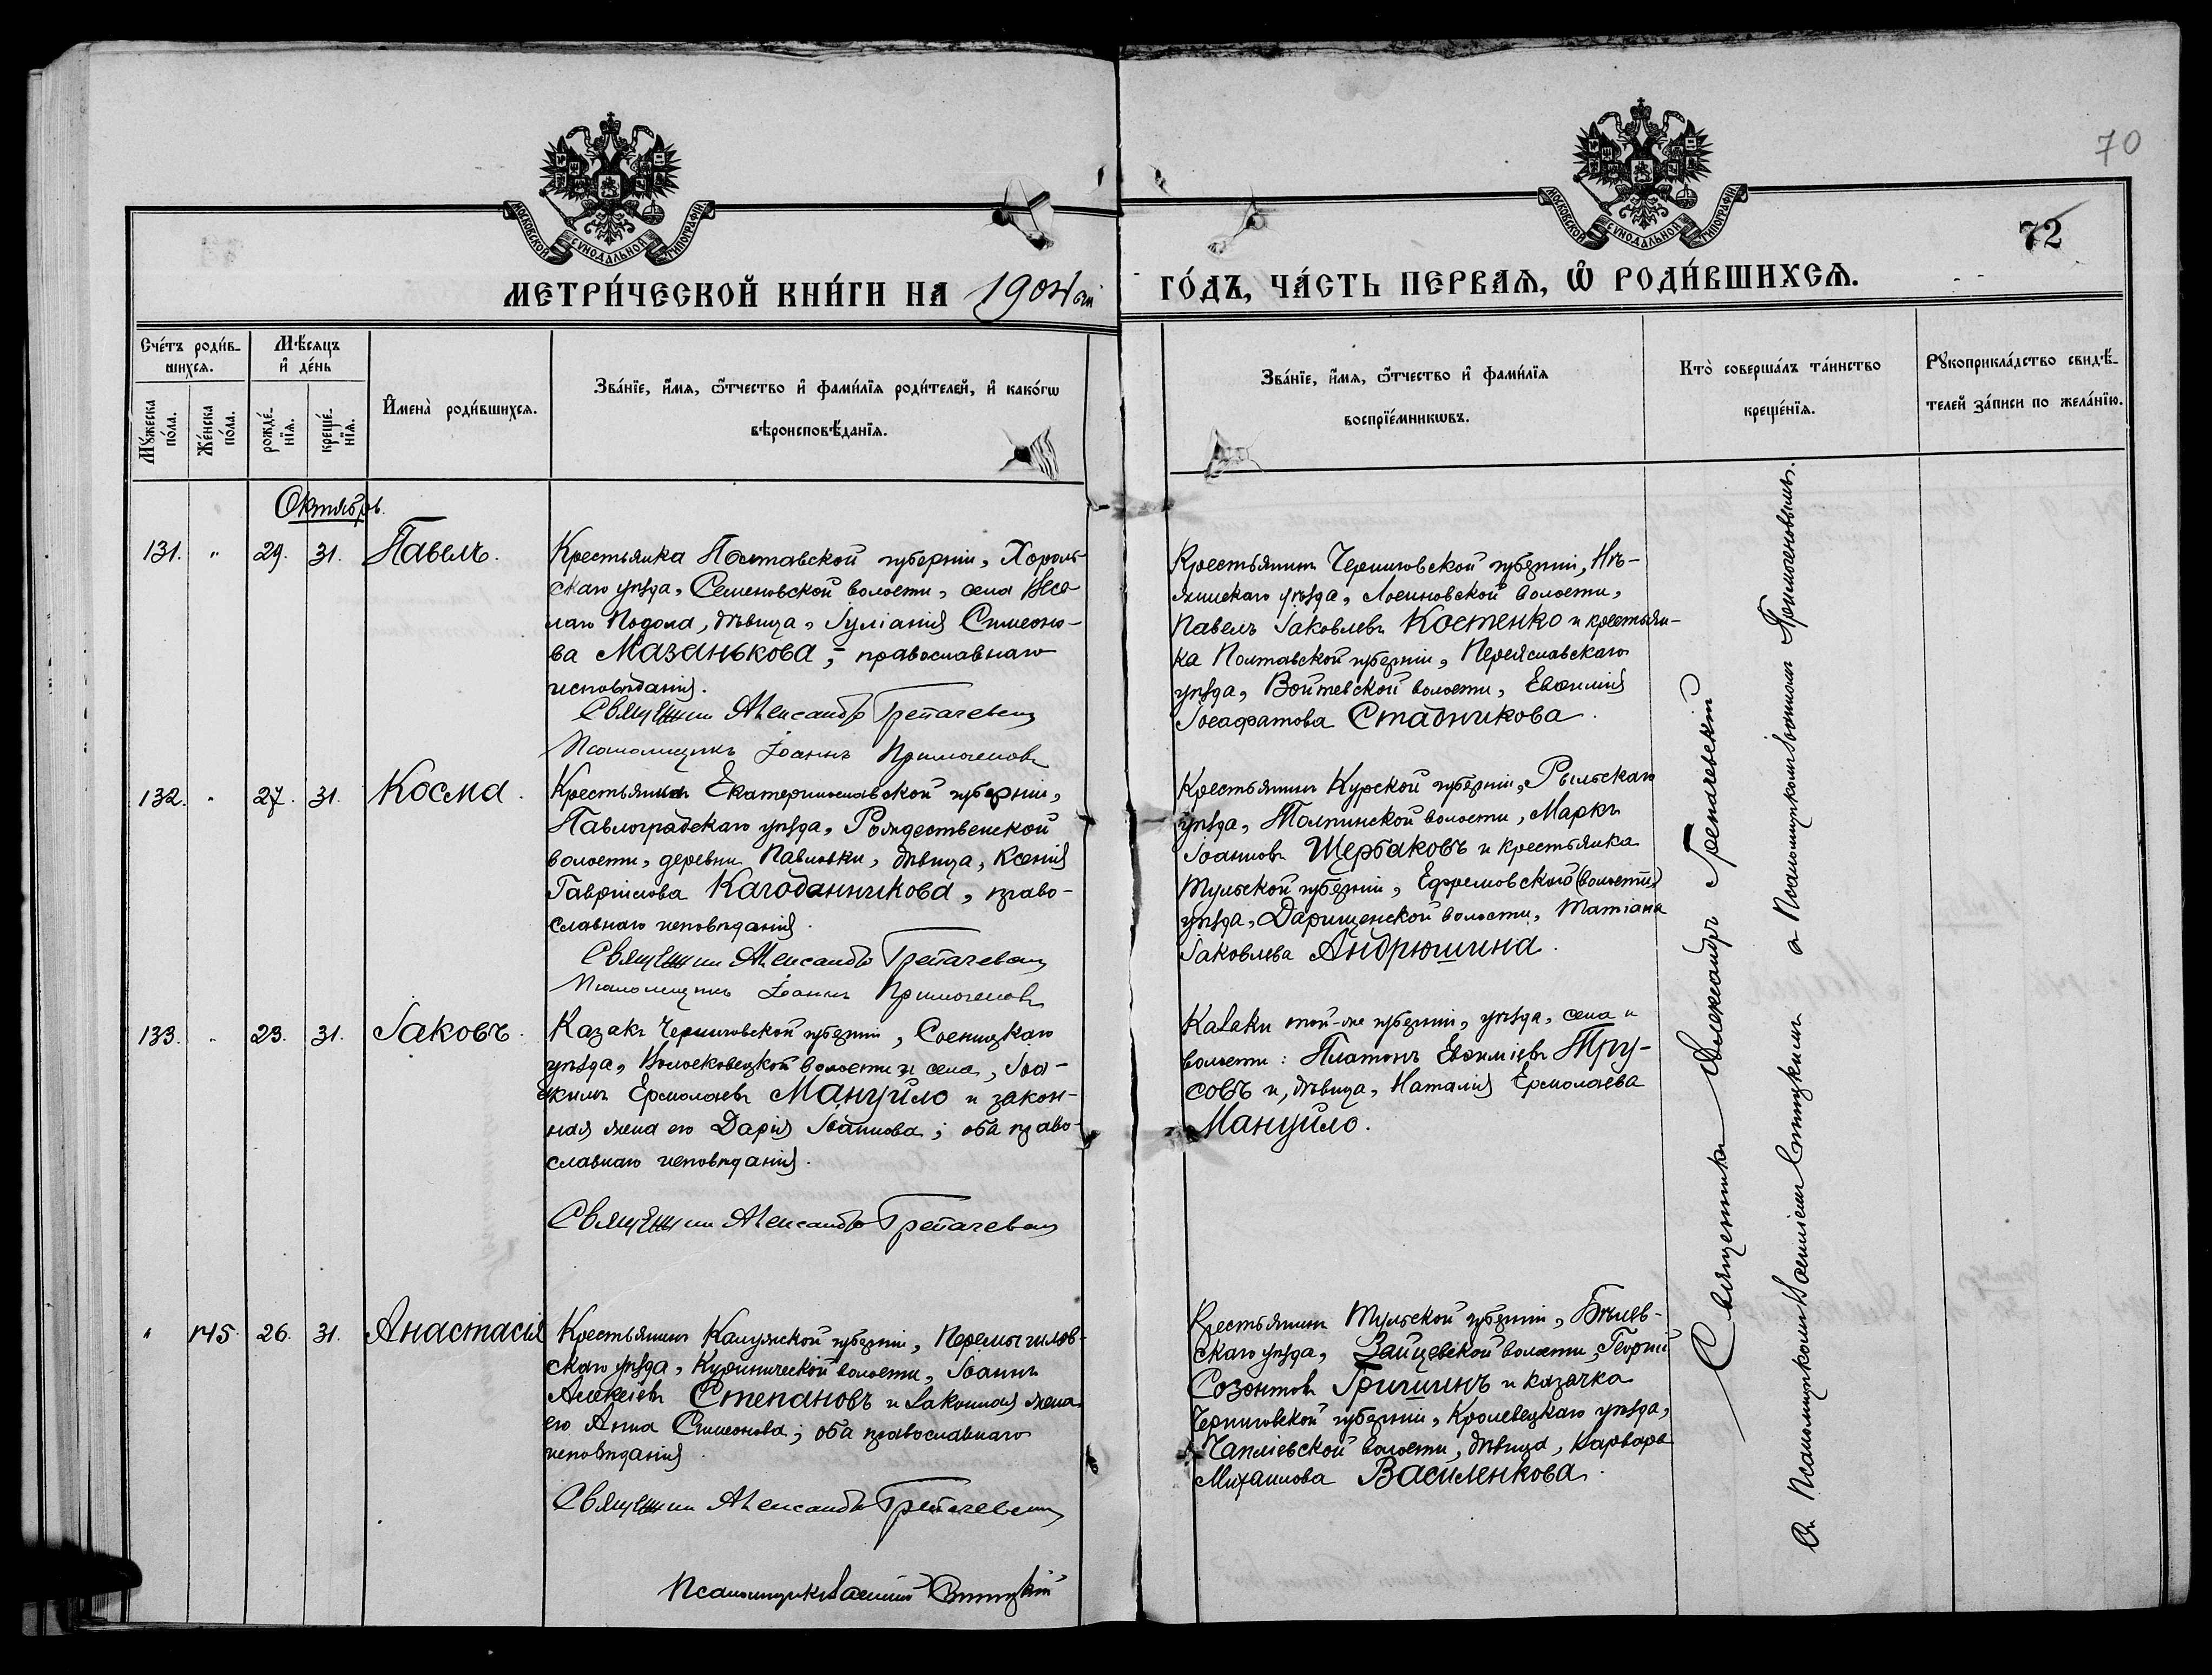 70
72
МОСКОВСКОЙ СѴНОДАЛЬНОЙ ТИПОГРАФІИ.
МОСКОВСКОЙ СѴНОДАЛЬНОЙ ТИПОГРАФІИ.
МЕТРИ́ЧЕСКОЙ КНИ́ГИ НА 1904 ый ГО́ДЪ, ЧА́СТЬ ПЕРВАѦ, Ѡ҆ РОДИ́ВШИХСѦ.
Сче́тъ роди́в-
шихсѧ.
Мѣ́сѧцъ
и҆ де́нь
Мꙋ́жеска
по́ла.
Же́нска
по́ла.
рожде́-
нїѧ.
креще́-
нїѧ.
И҆мена̀ роди́вшихсѧ.
Зва́нїе, и҆́мѧ, ѻ҆́тчество и҆ фами́лїѧ роди́телей, и҆ како́гѡ
вѣроисповѣ́данїѧ.
Зва́нїе, и҆́мѧ, ѻ҆́тчество и҆ фами́лїѧ
воспрїе́мникѡвъ.
Кто̀ соверша́лъ та́инство
креще́нїѧ.
Рꙋкоприкла́дство свидѣ́-
телей за́писи по жела́нїю.
Октябрь.
131. " 29. 31. Павелъ.
Крестьянка Полтавской губерніи, Хороль-
скаго уѣзда, Семеновской волости, села Весе-
лаго Подола, дѣвица, Іуліанія Симеоно-
ва Мазанькова, православнаго
исповѣданія.
Священникъ Александръ Грепачевскій
Псаломщикъ Іоаннъ Примогеновъ
Крестьянинъ Черниговской губерніи, Нѣ-
жинскаго уѣзда, Лосиновской волости,
Павелъ Іаковлевъ Костенко и крестьян-
ка Полтавской губерніи, Переяславскаго
уѣзда, Войтовской волости, Евѳимія
Іосафатова Стадникова.
132. " 27. 31. Косма.
Крестьянка Екатеринославской губерніи,
Павлоградскаго уѣзда, Рождественской
волости, деревни Павловки, дѣвица, Ксенія
Гавріилова Кагоданникова, право-
славнаго исповѣданія.
Священникъ Александръ Грепачевскій
Псаломщикъ Іоаннъ Примогеновъ
Крестьянинъ Курской губерніи, Рыльскаго
уѣзда, Толпинской волости, Маркъ
Іоанновъ Щербаковъ и крестьянка
Тульской губерніи, Ефремовскаго (волости)
уѣзда, Дарищенской волости, Татіана
Іаковлева Андрюшина.
133. " 23. 31. Іаковъ.
Казакъ Черниговской губерніи, Сосницкаго
уѣзда, Волосковецкой волости и села, Іоа-
кимъ Ермолаевъ Мануйло и закон-
ная жена его Дарія Іоаннова; оба право-
славнаго исповѣданія.
Священникъ Александръ Грепачевскій
Казаки той-же губерніи, уѣзда, села и
волости: Платонъ Евѳиміевъ Тру-
совъ и, дѣвица, Наталія Ермолаева
Мануйло.
" 145. 26. 31. Анастасія
Крестьянинъ Калужской губерніи, Перемышлев-
скаго уѣзда, Куриничской волости, Іоаннъ
Алексіевъ Степановъ и законная жена
его Анна Симеонова; оба православнаго
исповѣданія.
Священникъ Александръ Грепачевскій
Псаломщикъ Василій Синицкій
Крестьянинъ Тульской губерніи, Бѣлев-
скаго уѣзда, Зайцевской волости, Георгій
Созонтовъ Гришинъ и казачка
Черниговской губерніи, Кролевецкаго уѣзда,
Чапліевской волости, дѣвица, Варвара
Михаилова Василенкова.
Священникъ Александръ Грепачевскій
Съ Псаломщикомъ Василіемъ Синицкимъ и Псаломщикомъ Іоанномъ Примогеновымъ.